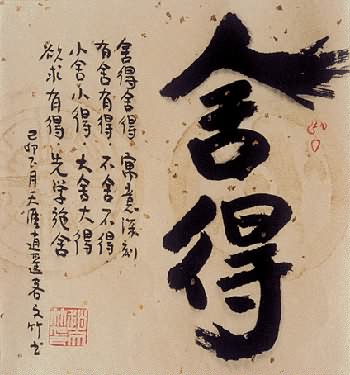 舍得
舍得舍得 寓意深刻
有舍有得·不舍不得
小舍小得·大舍大得
欲求有得·先学施舍
己卯八月天涯逍遥客文竹书